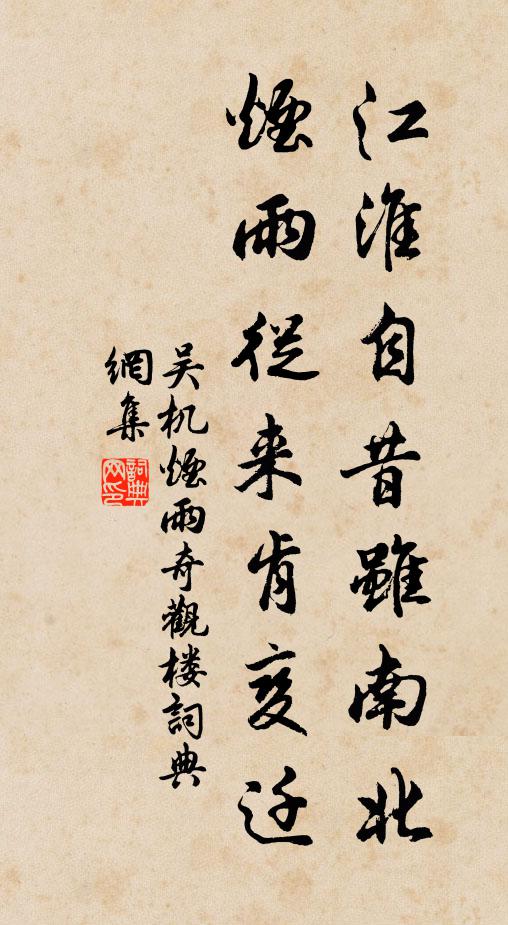 江淮自昔雖南北
煙雨從来肯变迁
吴机煙雨奇觀楼詞典
網集
詞典网印